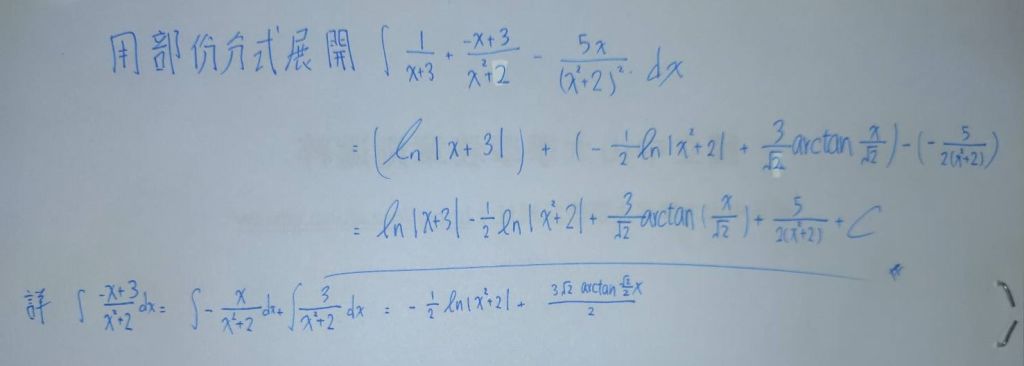 用部份分式展開 ∫ 1/(x+3) + (-x+3)/(x²+2) - 5x/(x²+2)² dx
= (ln|x+3|) + (-1/2 ln|x²+2| + 3/√2 arctan x/√2) - (-5/(2(x²+2)))
= ln|x+3| - 1/2 ln|x²+2| + 3/√2 arctan(x/√2) + 5/(2(x²+2)) + C
詳 ∫ (-x+3)/(x²+2) dx = ∫ -x/(x²+2) dx + ∫ 3/(x²+2) dx = -1/2 ln|x²+2| + (3√2 arctan √2/2 x)/2